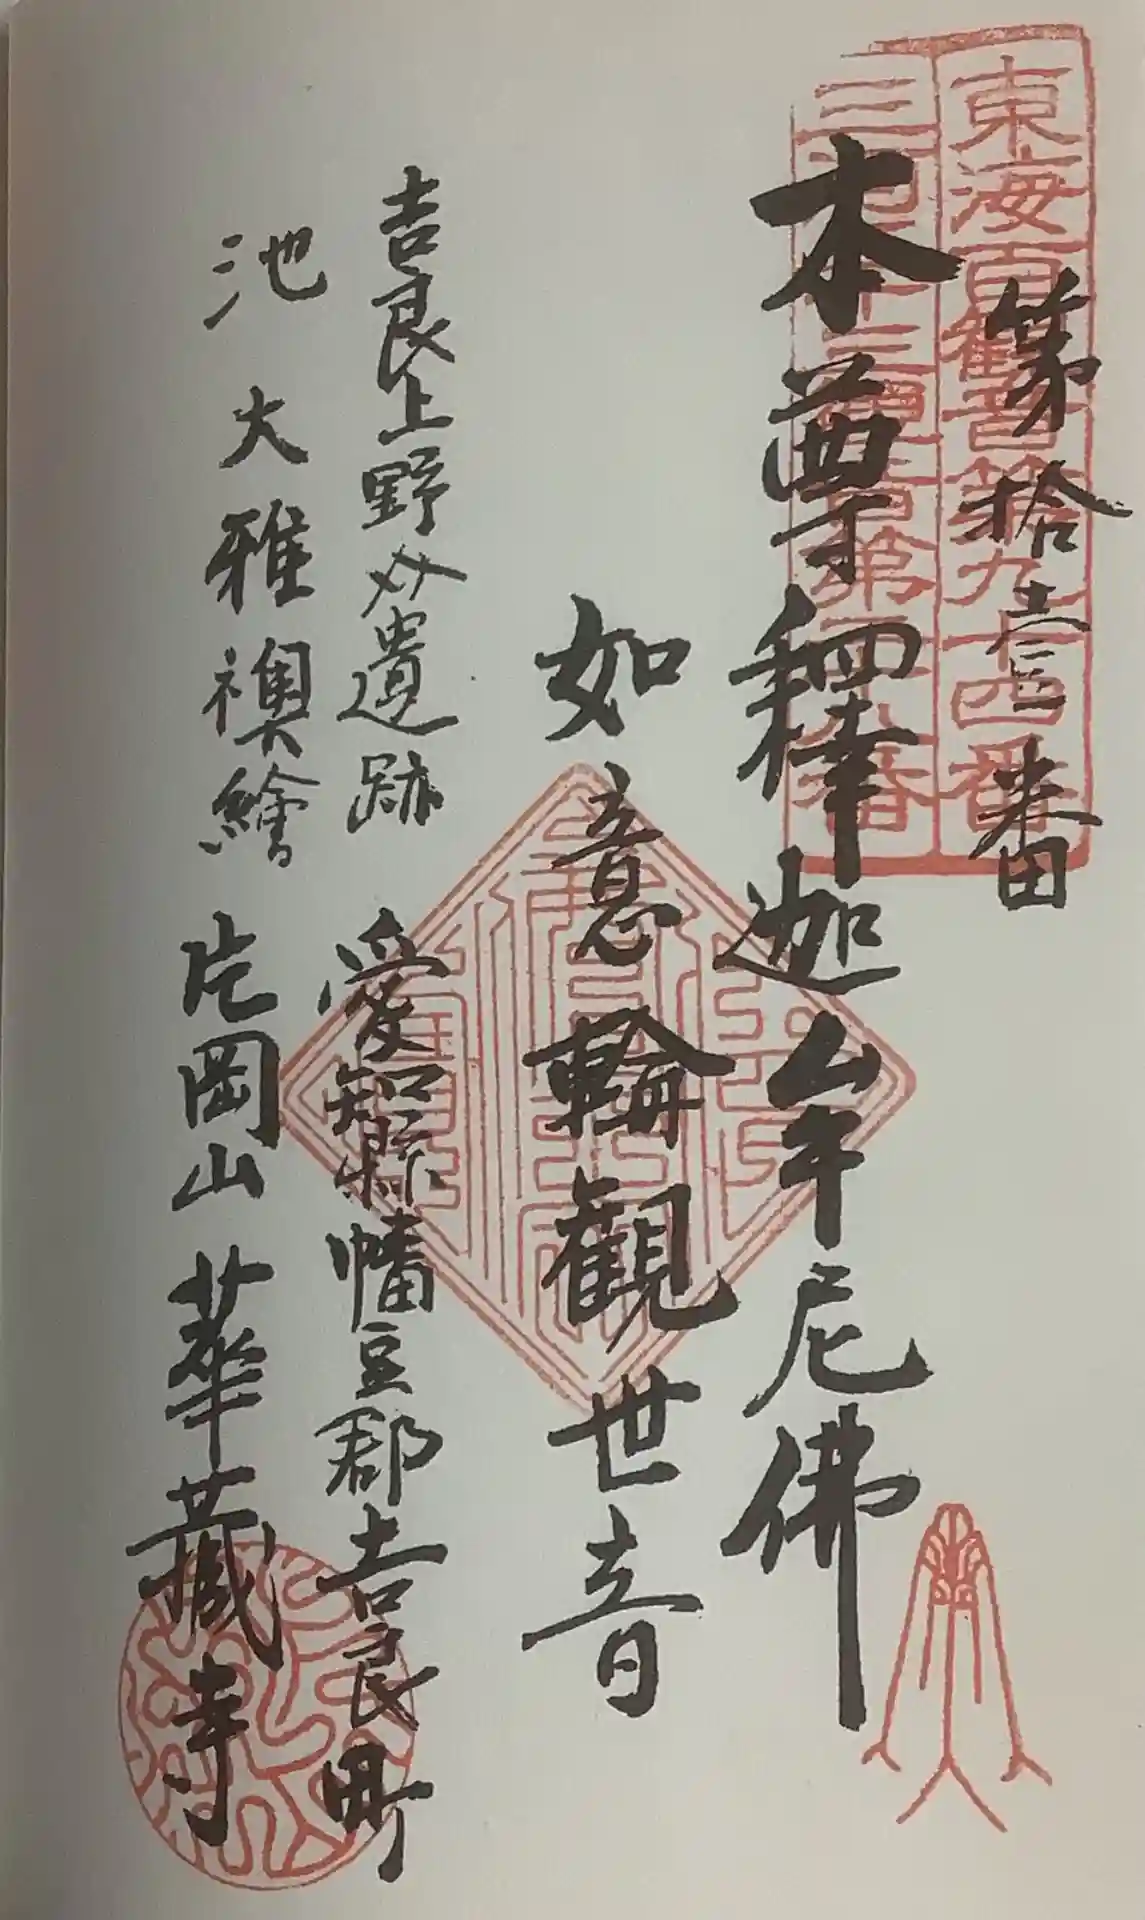 東海百観音第九十四番
三河三十三観音第二十八番
第拾壱番
本尊釋迦牟尼佛
如意輪觀世音
吉良上野介遺跡
愛知縣幡豆郡吉良町
池大雅襖繪
片岡山華藏寺